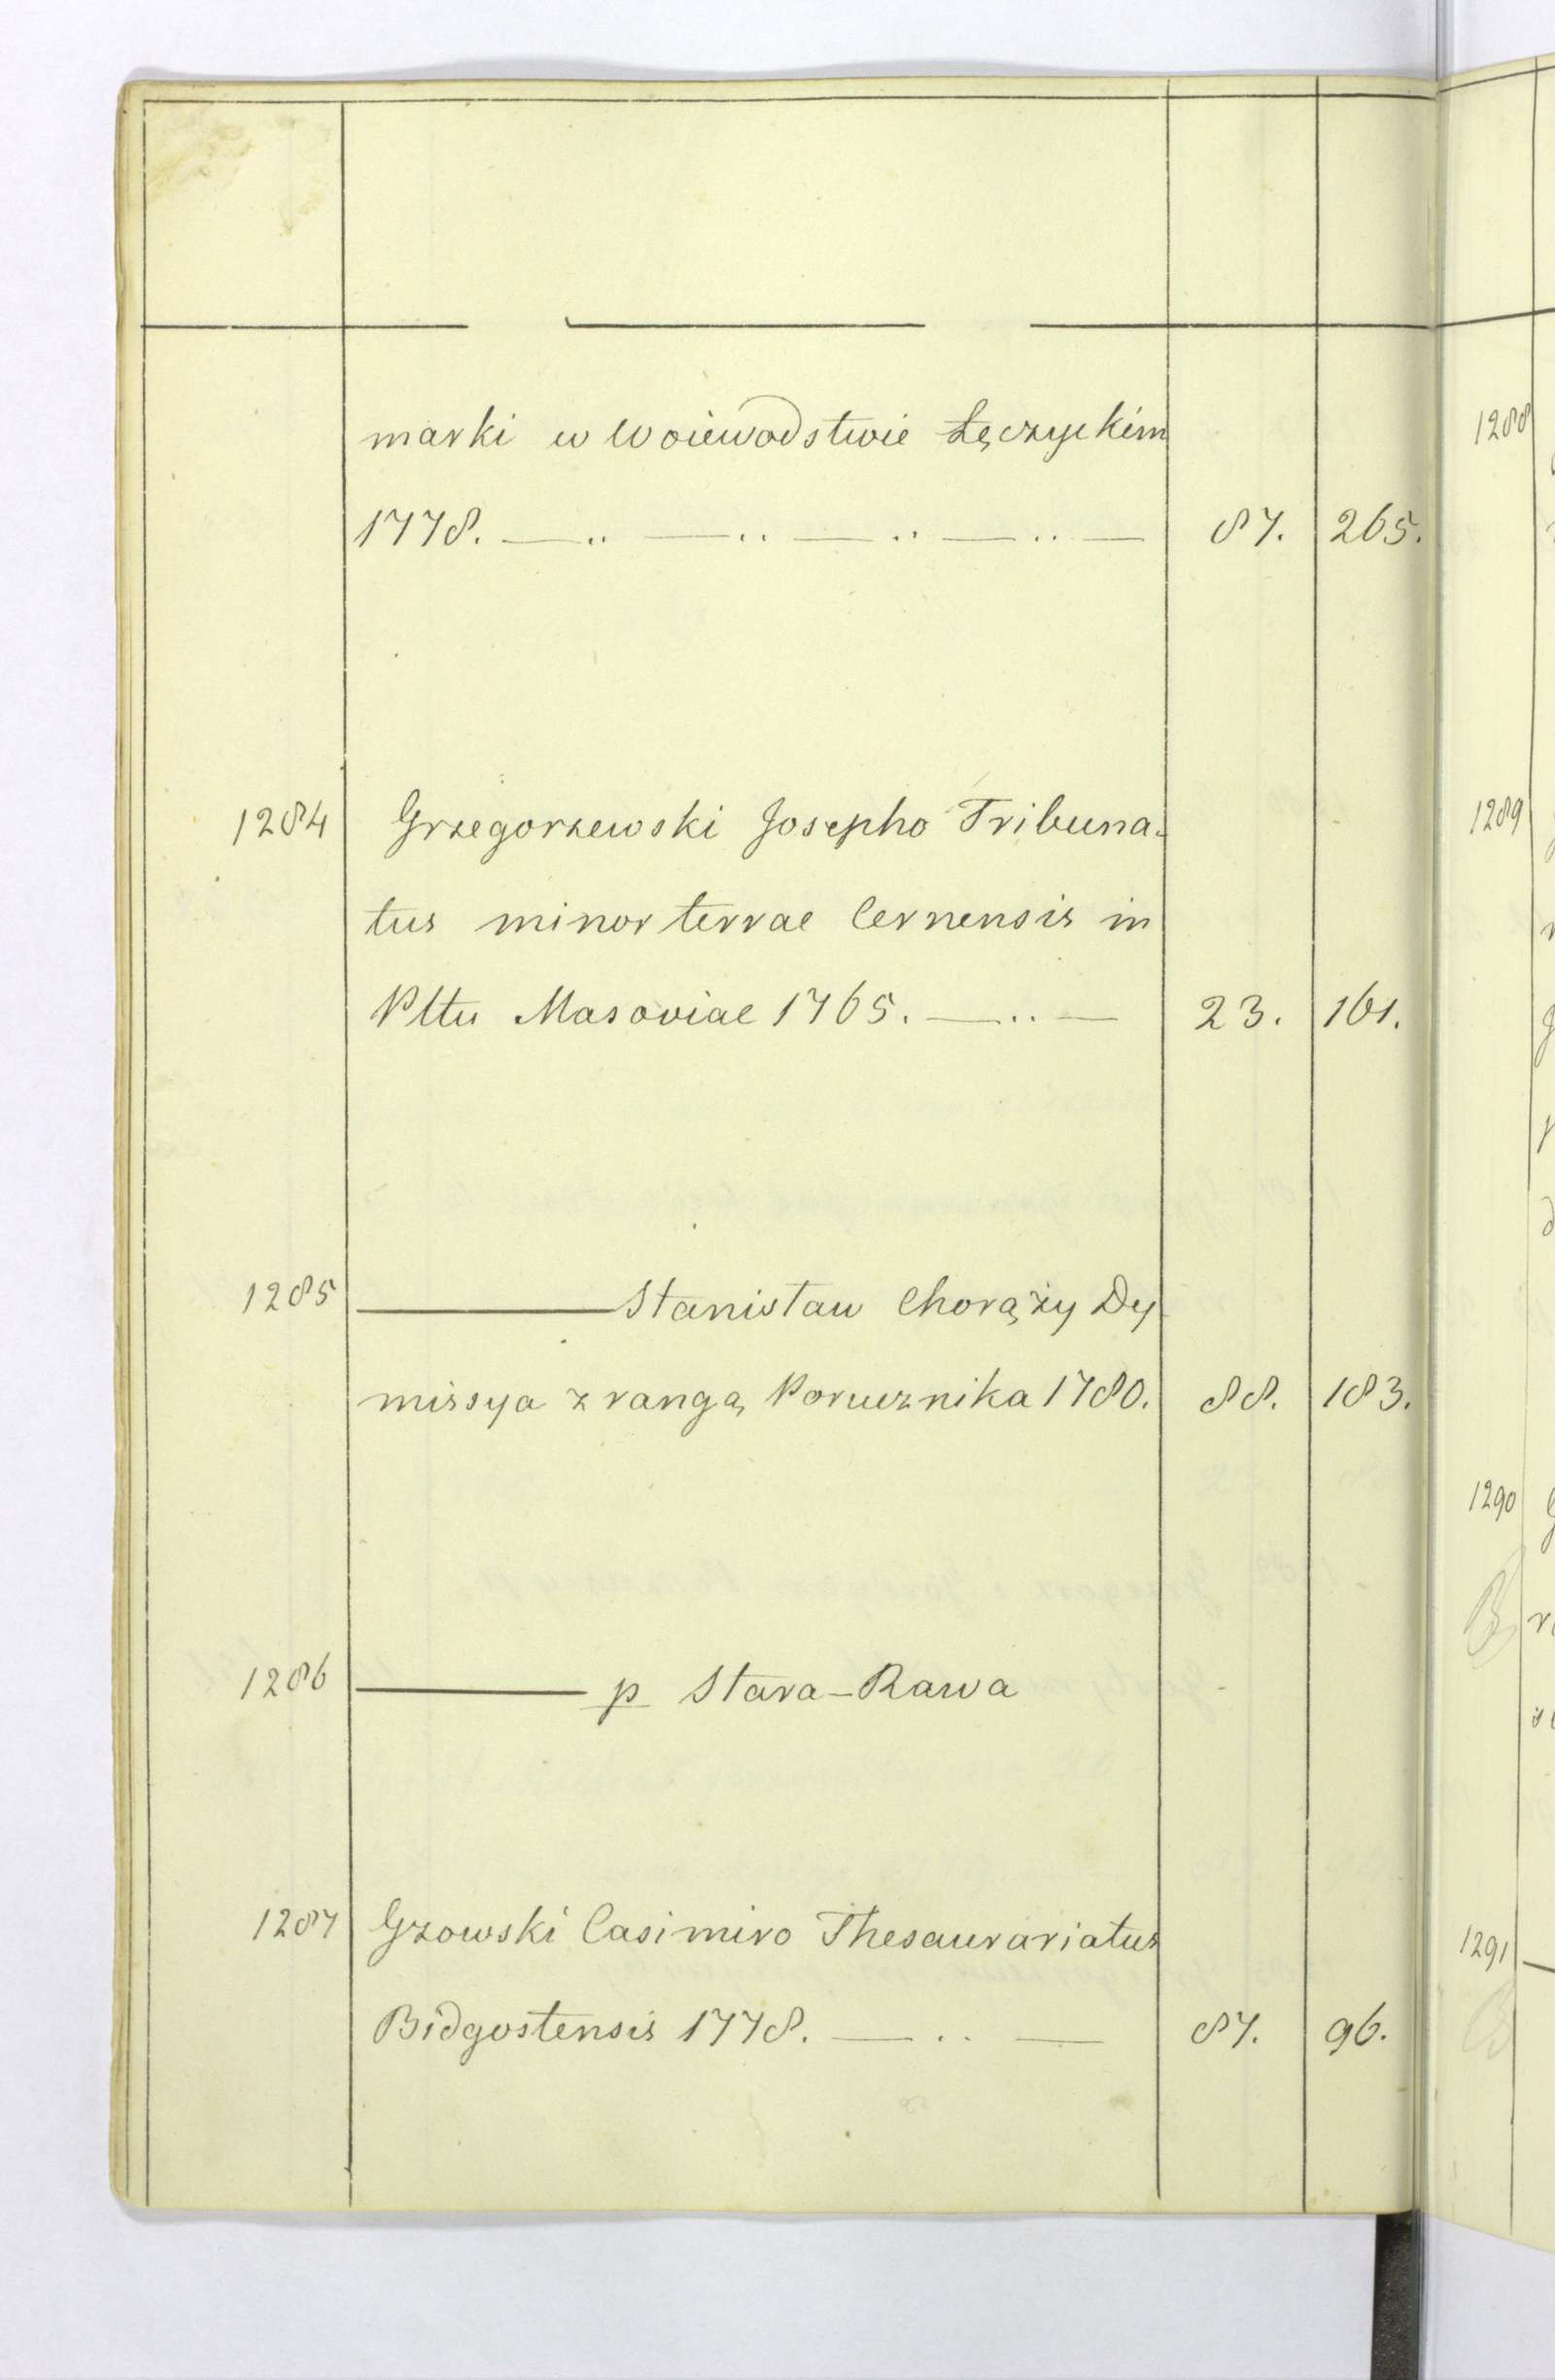 marki w Woiewodstwie Łęczyckim
1778. — .. — .. — .. — .. — 87. 265.
1284 Grzegorzewski Josepho Tribuna-
tus minor terrae Cernensis in
Pltu Masoviae 1765. — .. — 23. 161.
1285 ——— Stanisław Chorąży Dy-
missya z rangą Porucznika 1780. 88. 183.
1286 ——— p Stara-Rawa
1287 Gzowski Casimiro Thesaurariatus
Bidgostensis 1778. — .. — 87. 96.
1288
1289
1290
1291